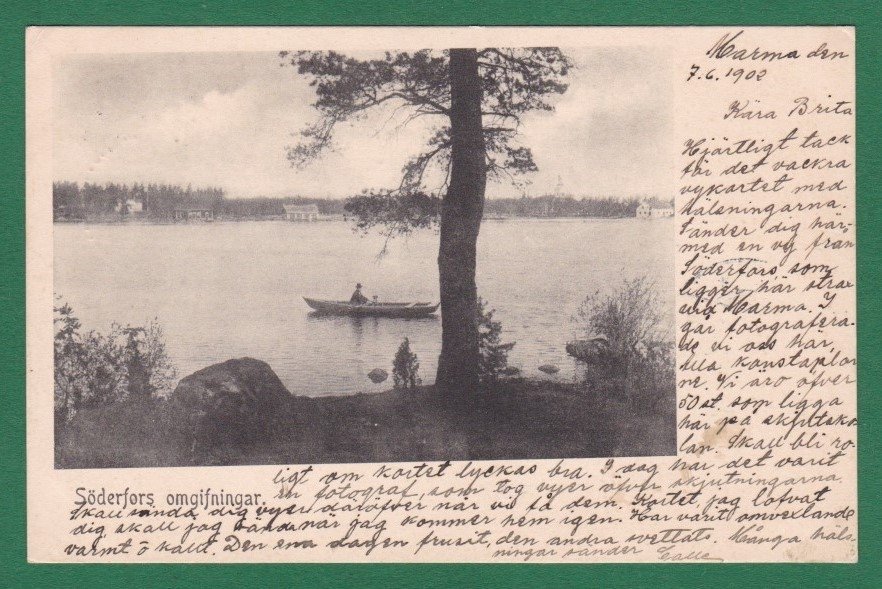 Marma den
7.6.1902
Kära Brita
Hjärtligt tack
för det vackra
vykortet med
hälsningarna.
Sänder dig här-
med en vy från
Söderfors, som
ligger här strax
vid Marma. I
går fotografera-
de vi oss här,
alla konstaplar
ne. Vi äro öfver
50 st. som ligga
här på skjutsko-
lan. Skall bli ro-
ligt om kortet lyckas bra. I dag har det varit
en fotograf, som tog vyer öfver skjutningarna.
Skall sända dig vyer däröfver när vi få dem. Kortet, jag lofvat
dig skall jag sända när jag kommer hem igen. Har varit omvexlande
varmt o kallt. Den ena dagen frusit, den andra svettats. Många häls-
ningar sänder Calle
Söderfors omgifningar.